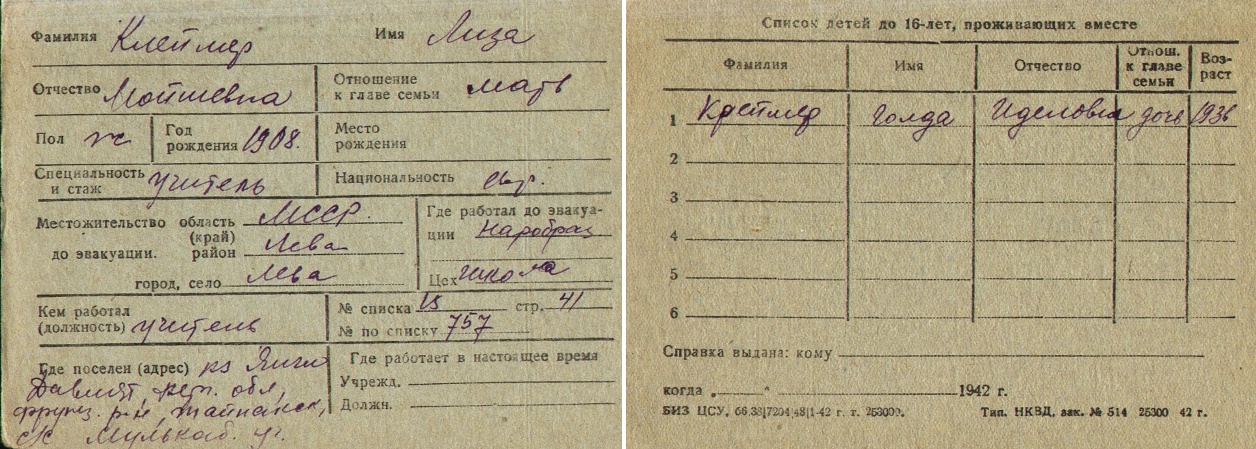 Фамилия Клеймер Имя Лиза
Отчество Мойшевна Отношение к главе семьи мать
Пол ж Год рождения 1908. Место рождения
Специальность и стаж учитель Национальность евр.
Местожительство область МССР.
(край)
до эвакуации. район Лева
город, село Лева
Где работал до эвакуации Наробраз
Цех школа
Кем работал (должность) учитель
№ списка 18 стр. 41
№ по списку 757
Где поселен (адрес) кз Янги
Давлят,
фрунз. р-н,
Где работает в настоящее время
Учрежд.
Должн.
Список детей до 16-лет, проживающих вместе
Фамилия Имя Отчество Отнош. к главе семьи Возраст
1 Креймер Голда Иделовна дочь 1936
2
3
4
5
6
Справка выдана: кому
когда 1942 г.
БИЗ ЦСУ, 66,38|7204|48|1-42 г. т. 253000. Тип. НКВД, зак. № 514 25300 42 г.